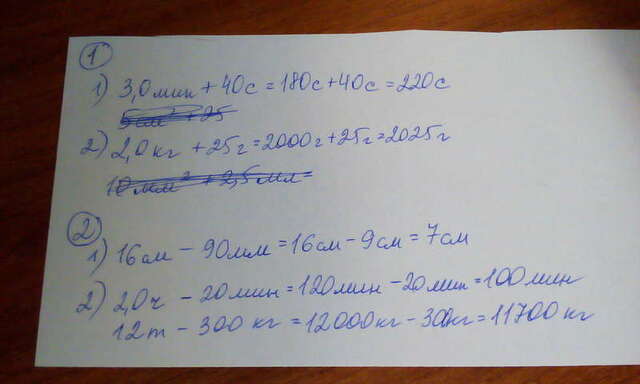 1
1) 3,0 мин + 40с = 180с + 40с = 220с
5 см² + 25
2) 2,0 кг + 25г = 2000г + 25г = 2025г
10 мм² + 2,5 мл =
2
1) 16см - 90мм = 16см - 9см = 7см
2) 2,0ч - 20мин = 120мин - 20мин = 100мин
12т - 300 кг = 12000кг - 300кг = 11700 кг